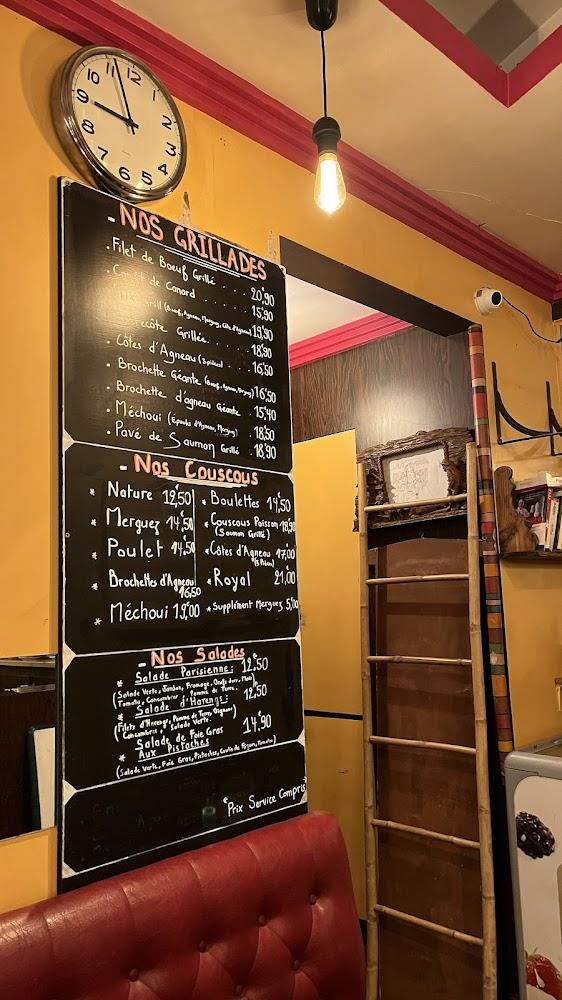 10 11 12 1
9 2
8 3
7 6 5 4
- NOS GRILLADES
. Filet de Boeuf Grillé . . . . 20,90
de Canard . . . . 15,90
Grill (Boeuf, Agneau, Merguez, Côte d'Agneau) 19,90
Grillée . . . . 18,90
. Côtes d'Agneau (3 pièces) . . . 16,50
. Brochette Géante (Boeuf, Agneau, Merguez) 16,50
. Brochette d'agneau Géante . 15,40
. Méchoui (Épaule d'Agneau, Merguez) . 18,50
. Pavé de Saumon Grillé . . 18,90
- Nos Couscous
* Nature 12,50
* Merguez 14,50
* Poulet 14,50
* Brochettes d'Agneau 16,50
* Méchoui 19,00
* Boulettes 14,50
* Couscous Poisson 18,90
(Saumon Grillé)
* Côtes d'Agneau 17,00
* Royal 21,00
* Supplément Merguez 5,00
- Nos Salades
* Salade Parisienne: 12,50
(Salade Verte, Jambon, Fromage, Oeufs durs, Maïs
Tomate, Concombre, Pomme de Terre.
* Salade d'Harengs: 12,50
(Filets d'Harengs, Pomme de Terre, Oignons
Concombre, Salade Verte.
Salade de Foie Gras 14,90
* Aux Pistaches
(Salade Verte, Foie Gras, Pistaches, Tomates)
*Prix Service Compris